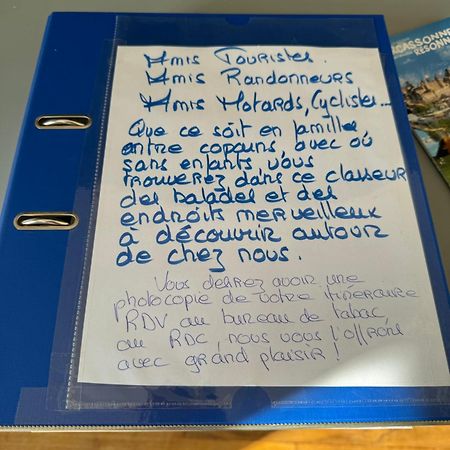 Amis Touristes.
Amis Randonneurs
Amis Motards, Cyclistes...
Que ce soit en famille,
entre copains, avec où
sans enfants vous
trouverez dans ce classeur
des balades et des
endroits merveilleux
à découvrir autour
de chez nous.
Vous désirez avoir une
photocopie de votre itinéraire
RDV au bureau de tabac,
au RDC, nous vous l'offrons
avec grand plaisir !
CARCASSONNE
RESONN